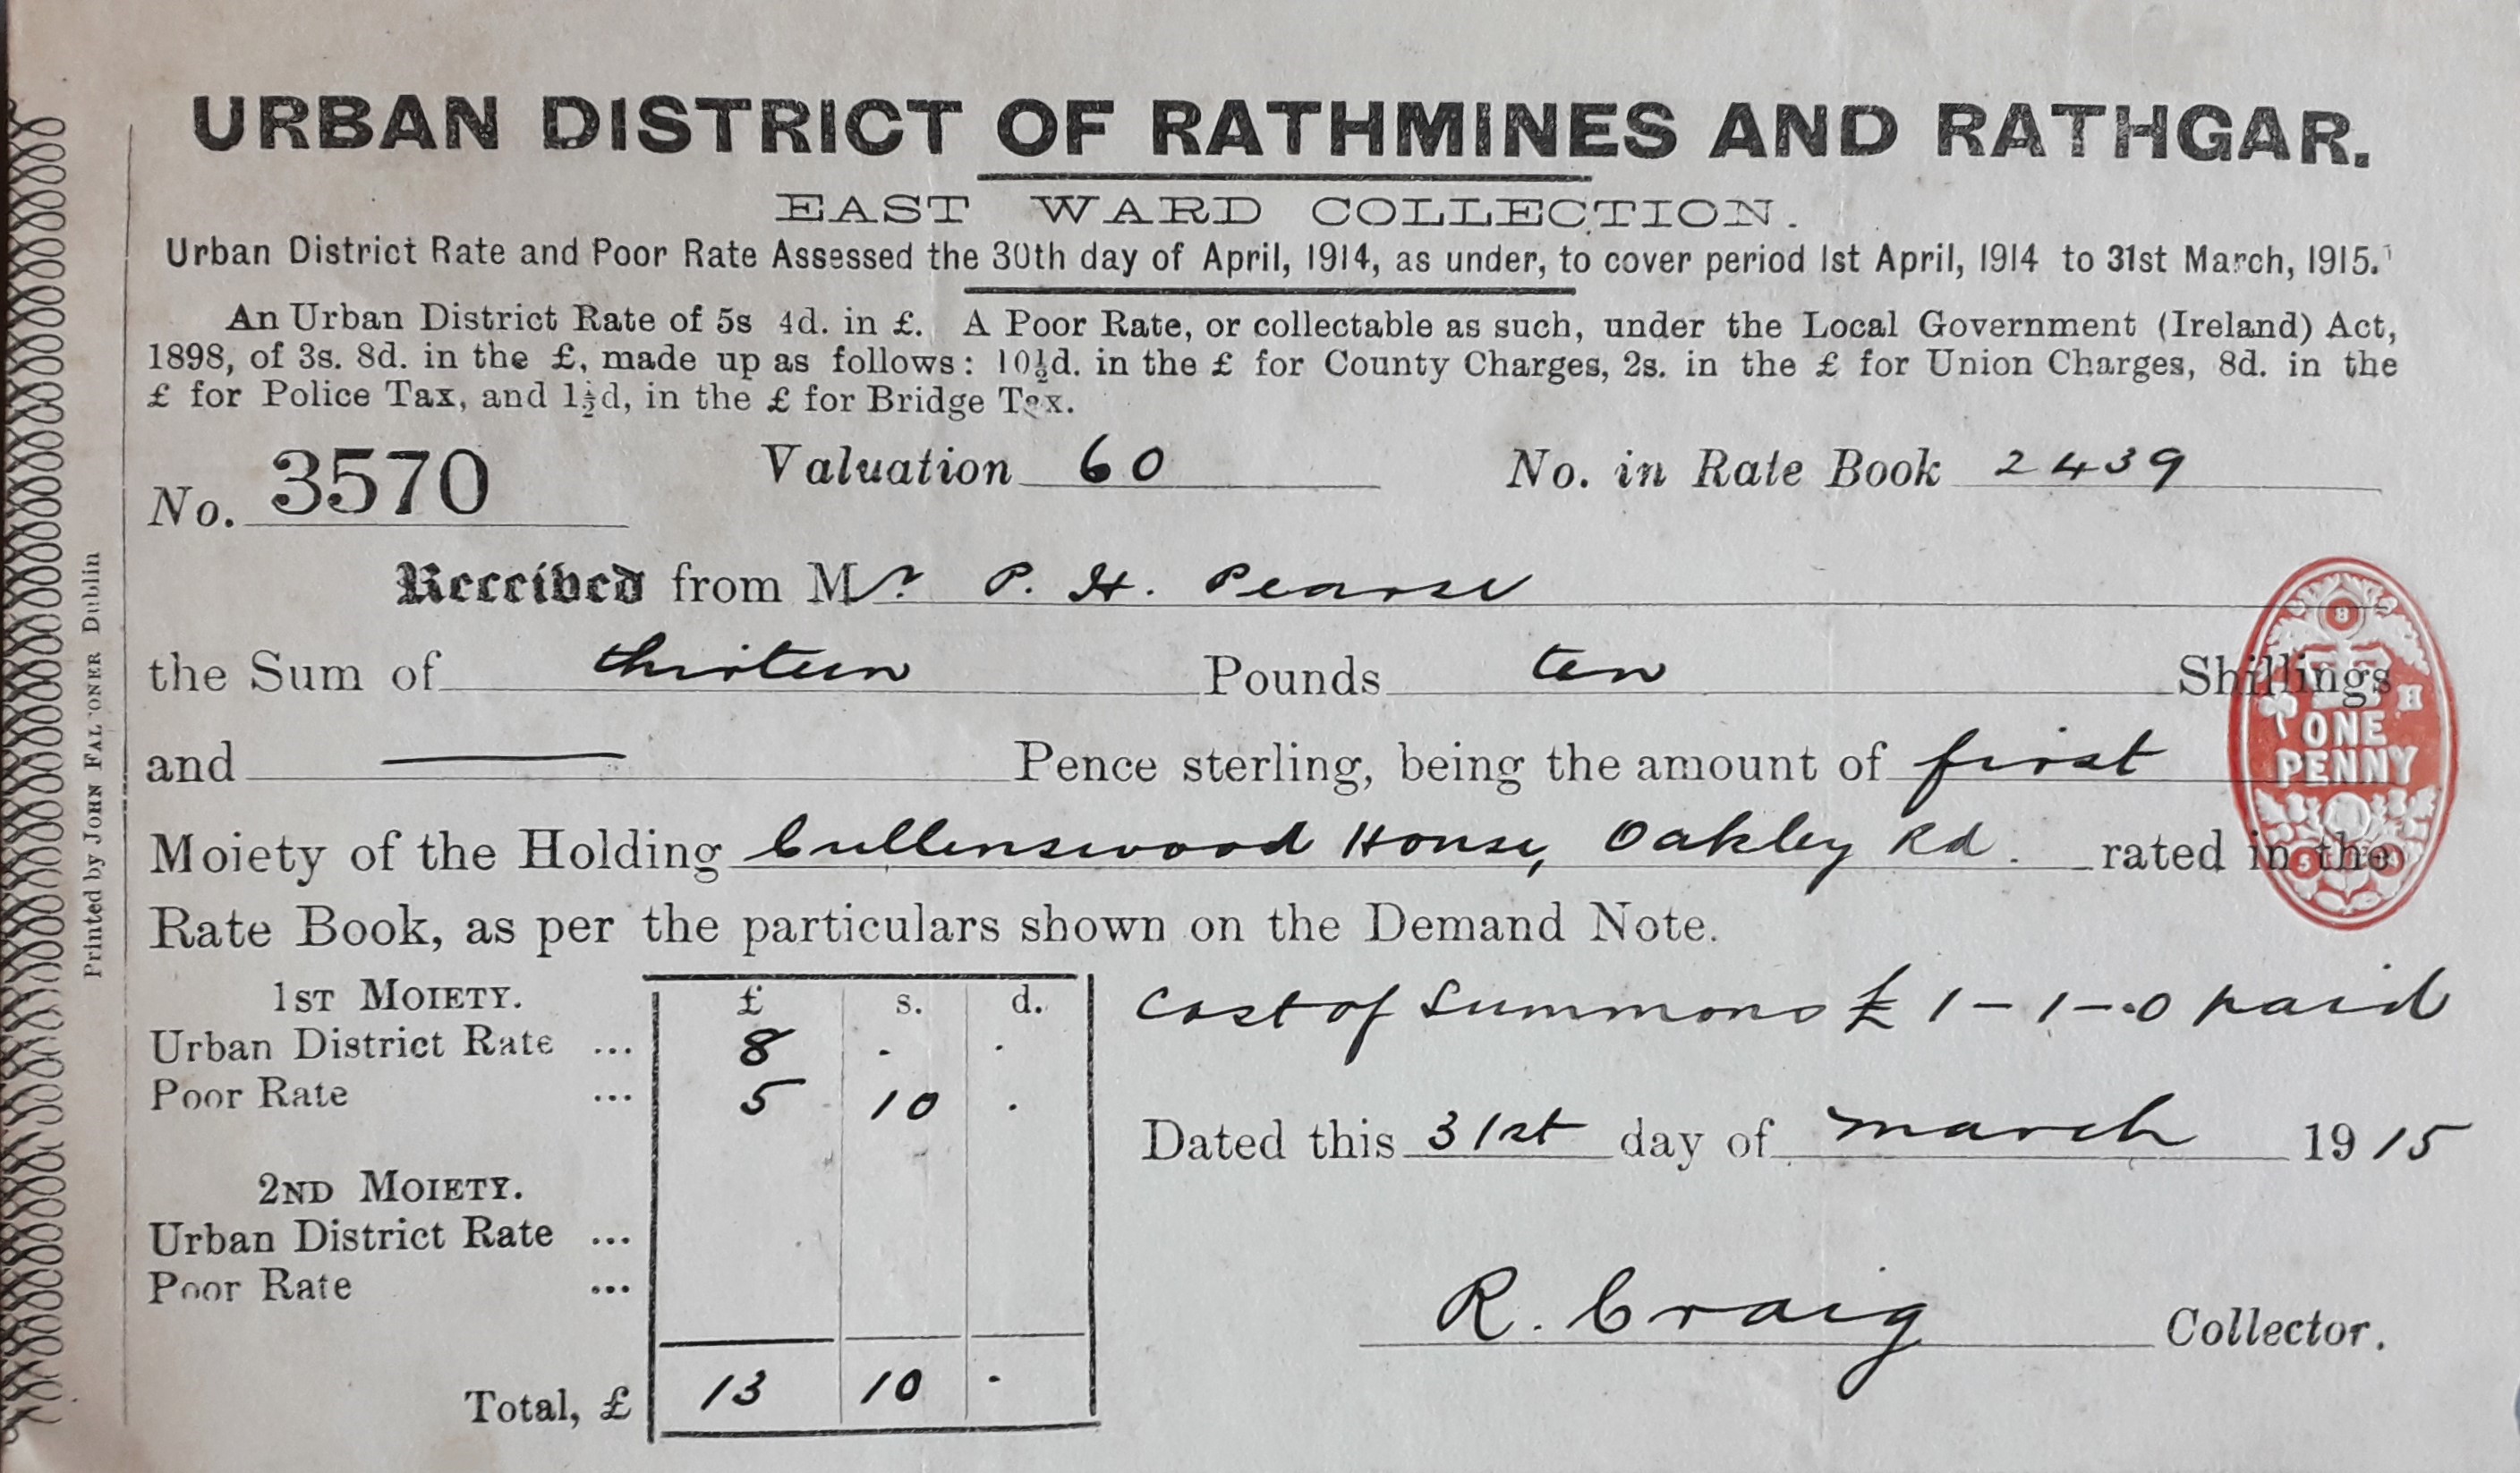 URBAN DISTRICT OF RATHMINES AND RATHGAR.
EAST WARD COLLECTION.
Urban District Rate and Poor Rate Assessed the 30th day of April, 1914, as under, to cover period 1st April, 1914 to 31st March, 1915.
An Urban District Rate of 5s 4d. in £. A Poor Rate, or collectable as such, under the Local Government (Ireland) Act,
1898, of 3s. 8d. in the £, made up as follows: 10½d. in the £ for County Charges, 2s. in the £ for Union Charges, 8d. in the
£ for Police Tax, and 1½d, in the £ for Bridge Tax.
No. 3570 Valuation 60 No. in Rate Book 2439
Received from Mr. P. H. Pearse
the Sum of thirteen Pounds ten Shillings
and — Pence sterling, being the amount of first
Moiety of the Holding Cullenswood House, Oakley Rd. rated in the
Rate Book, as per the particulars shown on the Demand Note.
1ST MOIETY. £ s. d.
Urban District Rate ... 8 . .
Poor Rate ... 5 10 .
2ND MOIETY.
Urban District Rate ...
Poor Rate ...
Total, £ 13 10 .
Cost of Summons £1-1-0 paid
Dated this 31st day of March 1915
R. Craig Collector.
ONE
PENNY
Printed by JOHN FALCONER Dublin